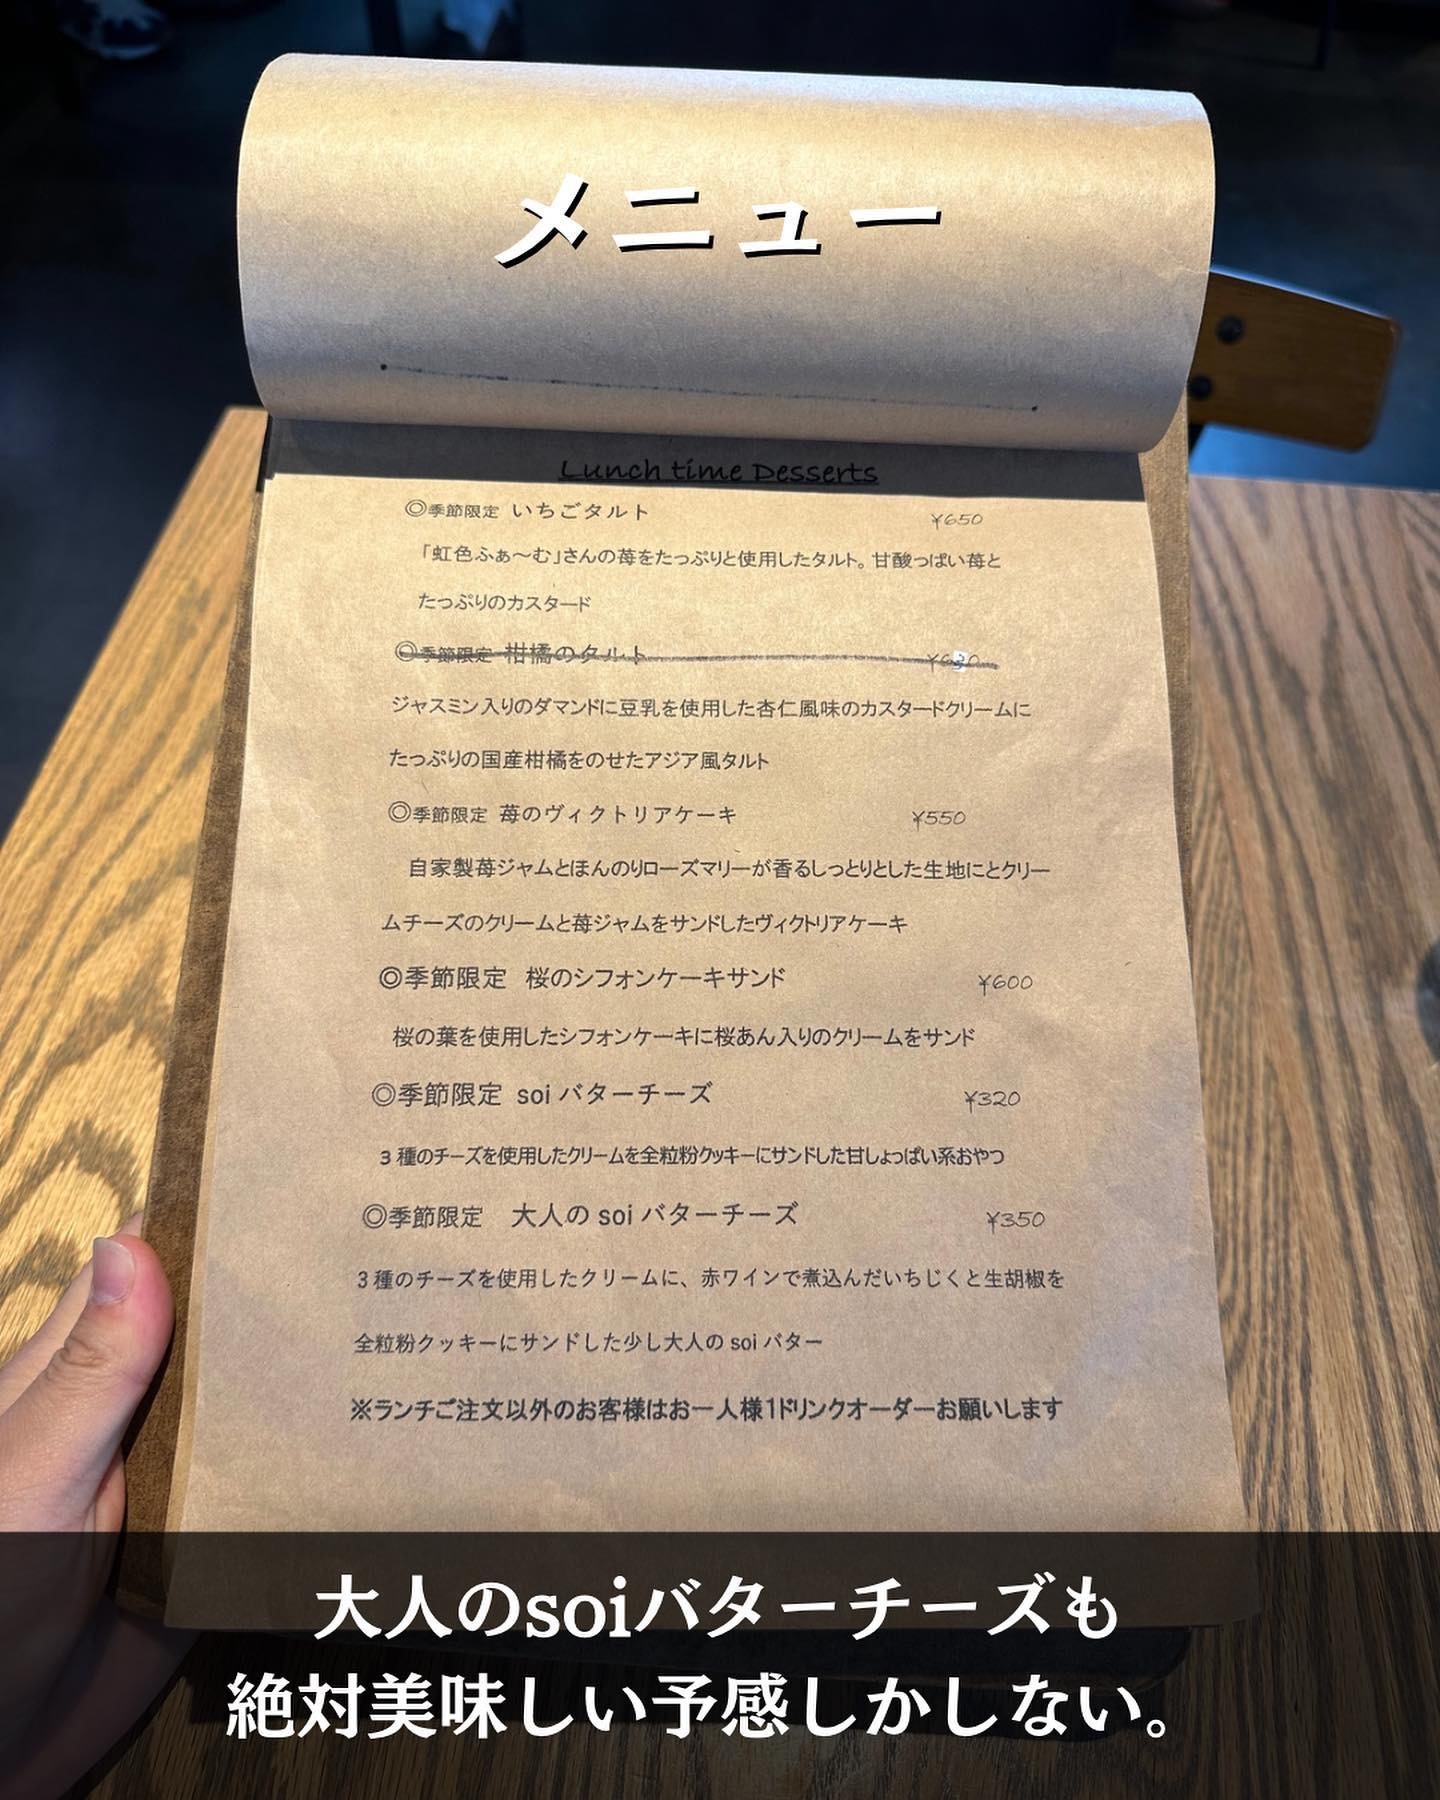 メニュー
Lunch time Desserts
◎季節限定 いちごタルト ¥650
「虹色ふぁ～む」さんの苺をたっぷりと使用したタルト。甘酸っぱい苺と
たっぷりのカスタード
◎季節限定 柑橘のタルト
ジャスミン入りのダマンドに豆乳を使用した杏仁風味のカスタードクリームに
たっぷりの国産柑橘をのせたアジア風タルト
◎季節限定 苺のヴィクトリアケーキ ¥550
自家製苺ジャムとほんのりローズマリーが香るしっとりとした生地にとクリー
ムチーズのクリームと苺ジャムをサンドしたヴィクトリアケーキ
◎季節限定 桜のシフォンケーキサンド ¥600
桜の葉を使用したシフォンケーキに桜あん入りのクリームをサンド
◎季節限定 soi バターチーズ ¥320
3 種のチーズを使用したクリームを全粒粉クッキーにサンドした甘しょっぱい系おやつ
◎季節限定 大人の soi バターチーズ ¥350
3 種のチーズを使用したクリームに、赤ワインで煮込んだいちじくと生胡椒を
全粒粉クッキーにサンドした少し大人の soi バター
※ランチご注文以外のお客様はお一人様1ドリンクオーダーお願いします
大人のsoiバターチーズも
絶対美味しい予感しかしない。